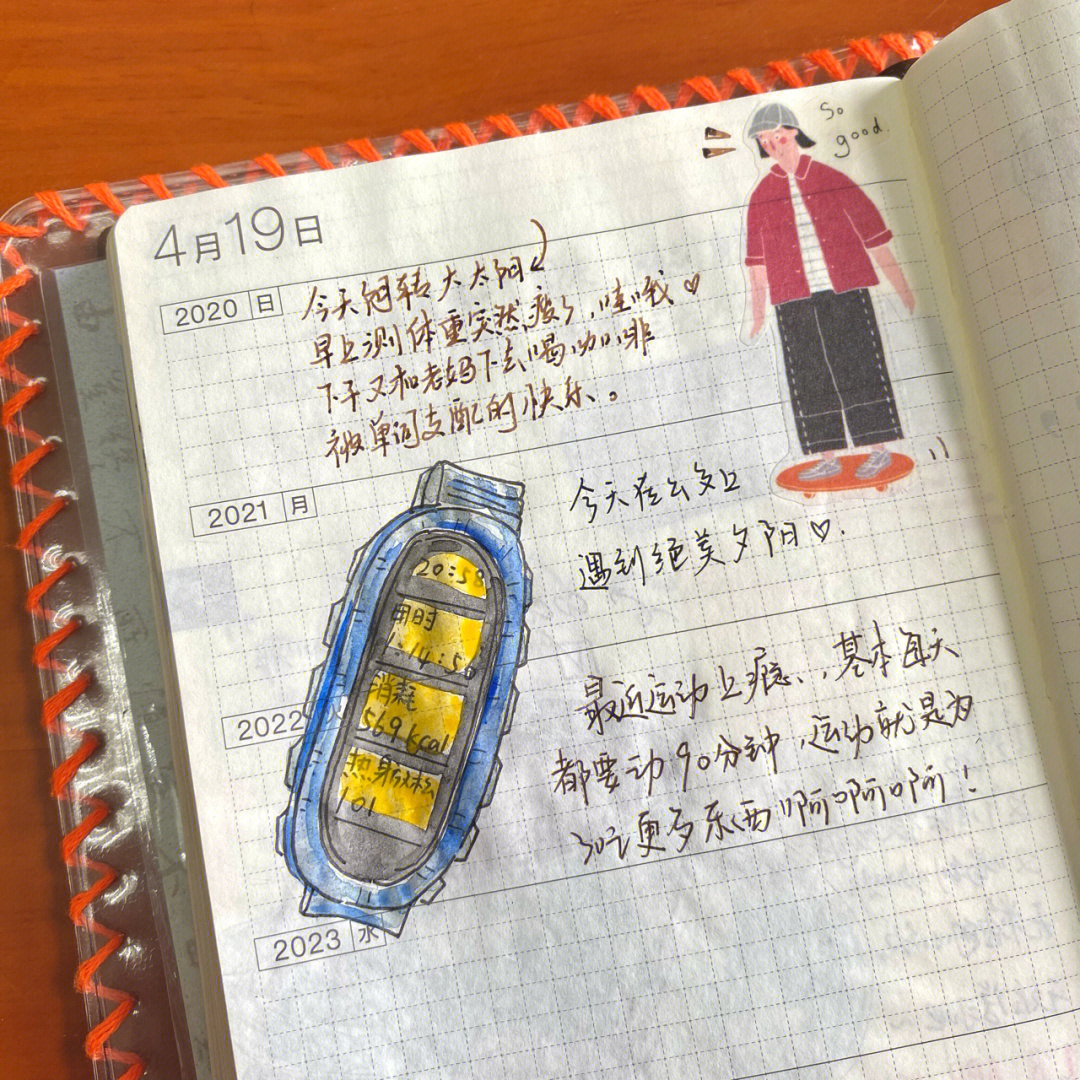 So
good
4月19日
2020 日
今天翘转大太阳
早上测体重突然瘦了，哇哦♡
下午又和老妈下去喝咖啡
被单词支配的快乐。
2021 月
今天在公交上
遇到绝美夕阳♡.
20:58
用时
1:14:58
消耗
569 kcal
热身放松
101
2022 火
最近运动上瘾，基本每天
都要动90分钟，运动就是为
了吃更多东西啊啊啊！
2023 水